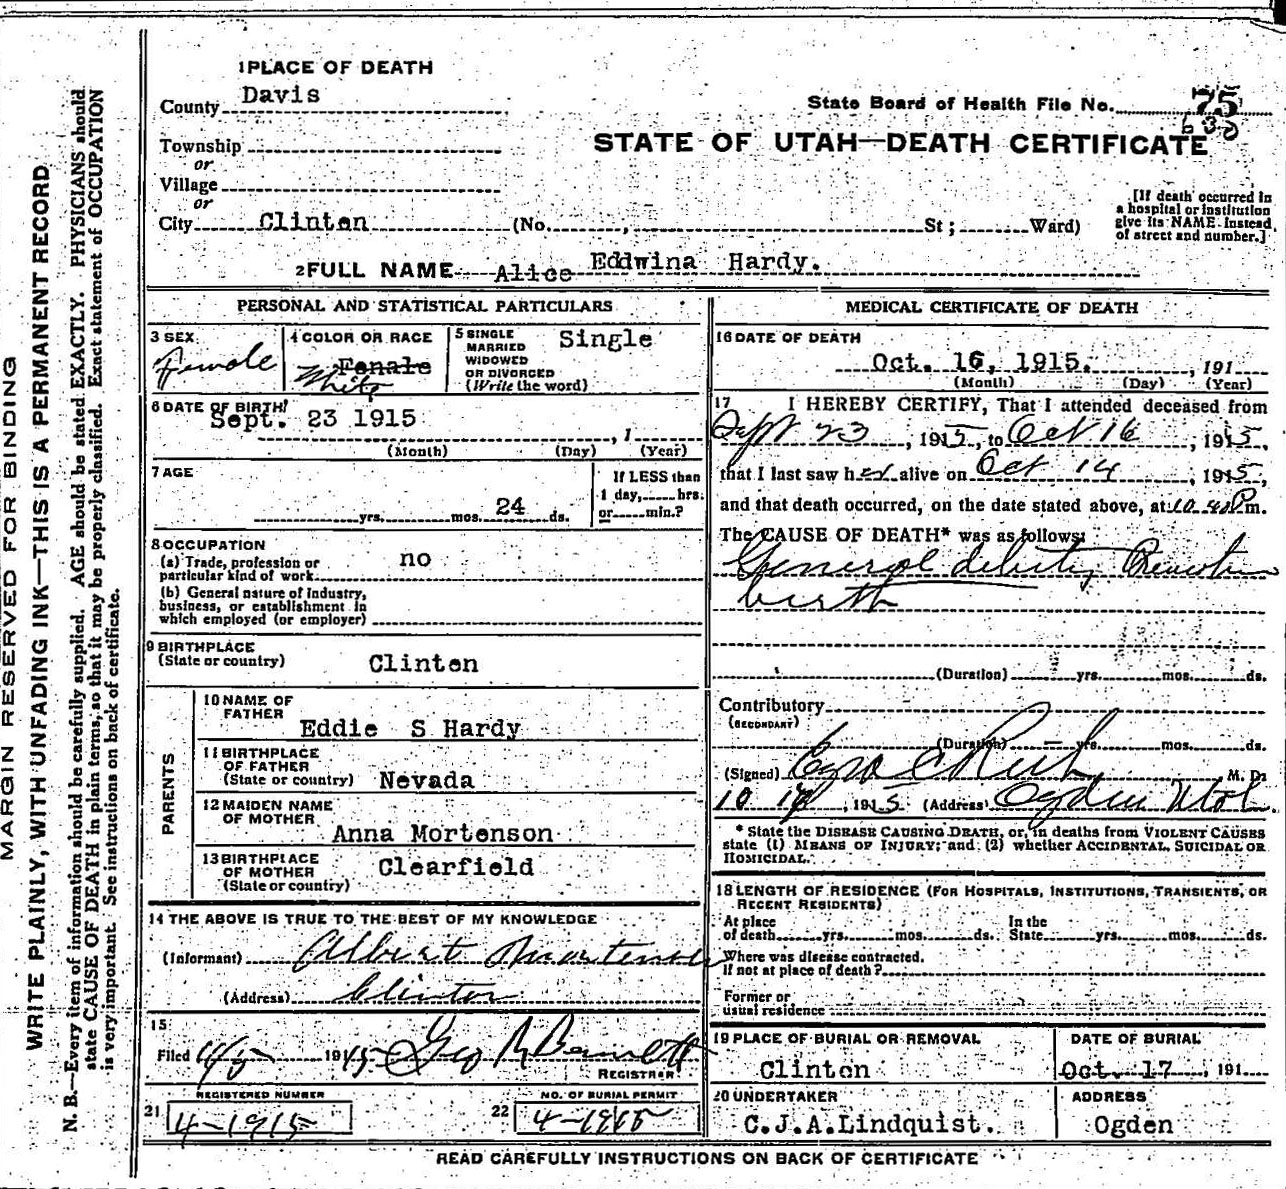 MARGIN RESERVED FOR BINDING
WRITE PLAINLY, WITH UNFADING INK—THIS IS A PERMANENT RECORD
N. B.—Every item of information should be carefully supplied. AGE should be stated EXACTLY. PHYSICIANS should
state CAUSE OF DEATH in plain terms, so that it may be properly classified. Exact statement of OCCUPATION
is very important. See instructions on back of certificate.
1 PLACE OF DEATH
County Davis
Township
or
Village
or
City Clinton (No. , St; Ward)
State Board of Health File No. 75
STATE OF UTAH—DEATH CERTIFICATE
[If death occurred in
a hospital or institution
give its NAME instead
of street and number.]
2 FULL NAME Alice Eddwina Hardy.
PERSONAL AND STATISTICAL PARTICULARS
3 SEX
Female
4 COLOR OR RACE
Female
White
5 SINGLE
MARRIED
WIDOWED
OR DIVORCED
(Write the word)
Single
6 DATE OF BIRTH
Sept. 23 1915
, 1
(Month) (Day) (Year)
7 AGE
yrs. mos. 24 ds.
If LESS than
1 day, hrs.
or min.?
8 OCCUPATION
(a) Trade, profession or
particular kind of work
no
(b) General nature of industry,
business, or establishment in
which employed (or employer)
9 BIRTHPLACE
(State or country)
Clinton
PARENTS
10 NAME OF
FATHER
Eddie S Hardy
11 BIRTHPLACE
OF FATHER
(State or country) Nevada
12 MAIDEN NAME
OF MOTHER
Anna Mortenson
13 BIRTHPLACE
OF MOTHER
(State or country)
Clearfield
14 THE ABOVE IS TRUE TO THE BEST OF MY KNOWLEDGE
(Informant) Albert Mortenson
(Address) Clinton
15
Filed 1915 Geo R Bennett
REGISTRER
REGISTERED NUMBER
21 4-1915
NO. OF BURIAL PERMIT
22 4-1915
MEDICAL CERTIFICATE OF DEATH
16 DATE OF DEATH
Oct. 16, 1915. , 191
(Month) (Day) (Year)
17 I HEREBY CERTIFY, That I attended deceased from
Sept 23, 1915, to Oct 16, 1915,
that I last saw her alive on Oct 14, 1915,
and that death occurred, on the date stated above, at 10-40 P m.
The CAUSE OF DEATH* was as follows:
General debility
birth
(Duration) yrs. mos. ds.
Contributory
(SECONDARY)
(Duration) yrs. mos. ds.
(Signed) Ezra C Rich M. D.
1915 (Address) Ogden Utah.
* State the DISEASE CAUSING DEATH, or, in deaths from VIOLENT CAUSES
state (1) MEANS OF INJURY; and (2) whether ACCIDENTAL, SUICIDAL OR
HOMICIDAL.
18 LENGTH OF RESIDENCE (FOR HOSPITALS, INSTITUTIONS, TRANSIENTS, OR
RECENT RESIDENTS)
At place
of death yrs. mos. ds.
In the
State yrs. mos. ds.
Where was disease contracted.
if not at place of death?
Former or
usual residence
19 PLACE OF BURIAL OR REMOVAL
Clinton
DATE OF BURIAL
Oct. 17, 191
20 UNDERTAKER
C.J.A.Lindquist.
ADDRESS
Ogden
READ CAREFULLY INSTRUCTIONS ON BACK OF CERTIFICATE